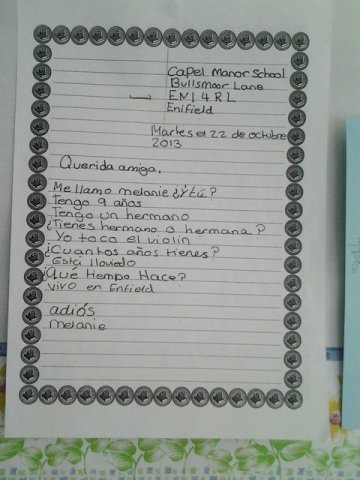 Capel Manor School
Bullsmoor Lane
EN1 4RL
Enifield
Martes el 22 de octubre
2013
Querida amiga,
Me llamo melanie ¿Y tú?
Tengo 9 años
Tengo un hermano
¿Tienes hermano o hermana?
Yo toco el violin
¿Cuantos años tienes?
Está lloviedo
¿Qué tiempo Hace?
vivo en Enfield
adiós
melanie